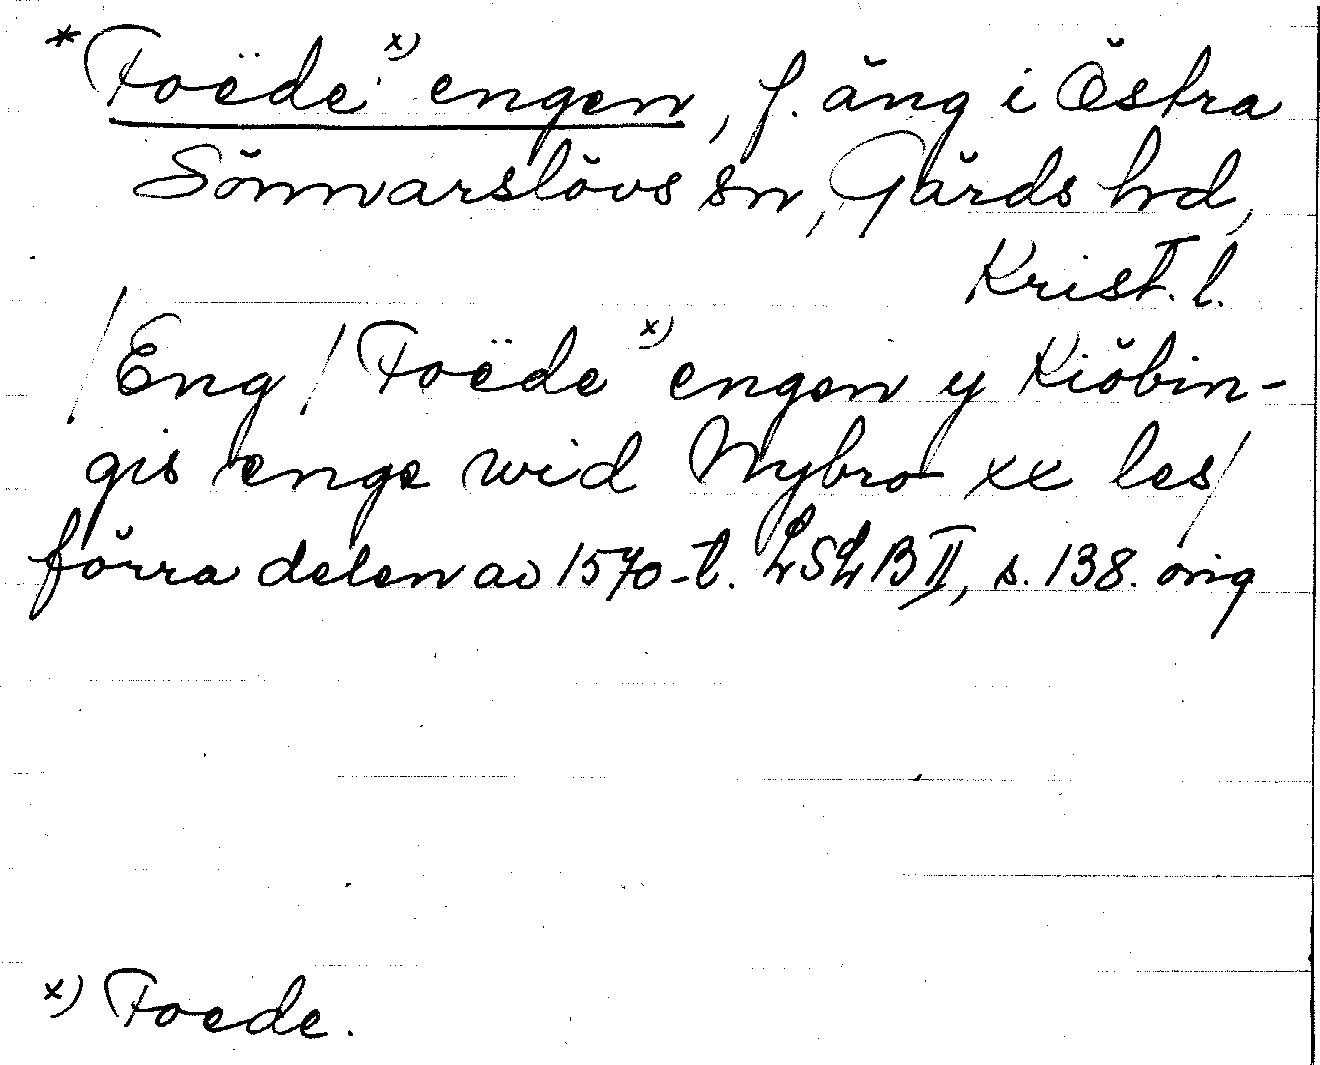 *Foëde x) engen, f. äng i Östra
Sönnarslövs sn, Gärds hd,
Krist. l.
/Eng/ Foëde x) engen y Kiöbin-
gis enge wid Nybro xx les/
förra delen av 1570-t. LSLB II, s. 138. orig
x) Foede.